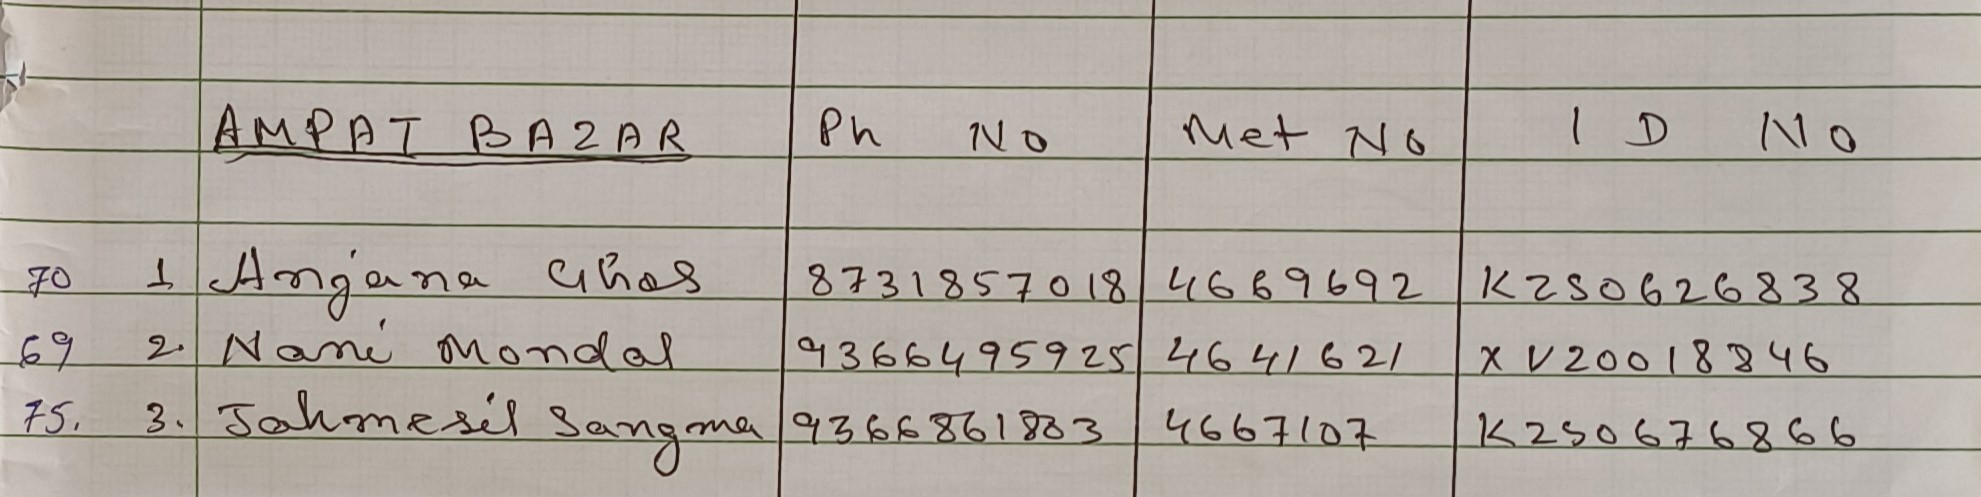 AMPAT BAZAR Ph No Met No I D No
70 1 Anjana Ghos 8731857018 4669692 KZS0626838
69 2. Nani Mondal 9366495925 4641621 XVZ0018846
75. 3. Jahmesil Sangma 9366861883 4667107 KZS0676866